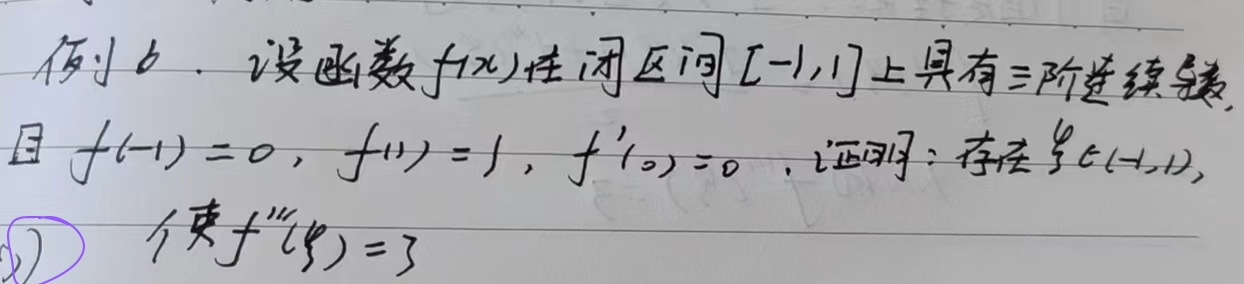 例6. 设函数f(x)在闭区间[-1,1]上具有三阶连续导数,
且 f(-1)=0, f(1)=1, f'(0)=0. 证明:存在ξ∈(-1,1),
使f'''(ξ)=3